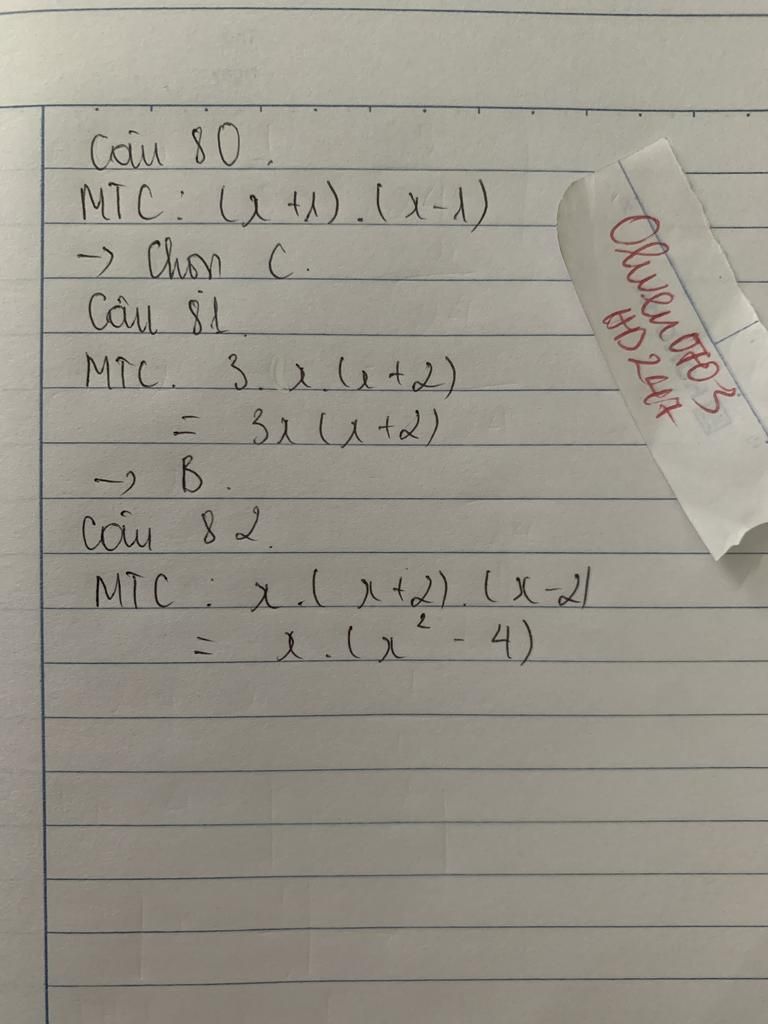 Câu 80.
MTC: (x+1).(x-1)
→ Chọn C.
Câu 81.
MTC. 3.x.(x+2)
= 3x(x+2)
→ B.
Câu 82.
MTC: x.(x+2).(x-2)
= x.(x² - 4)
HD247